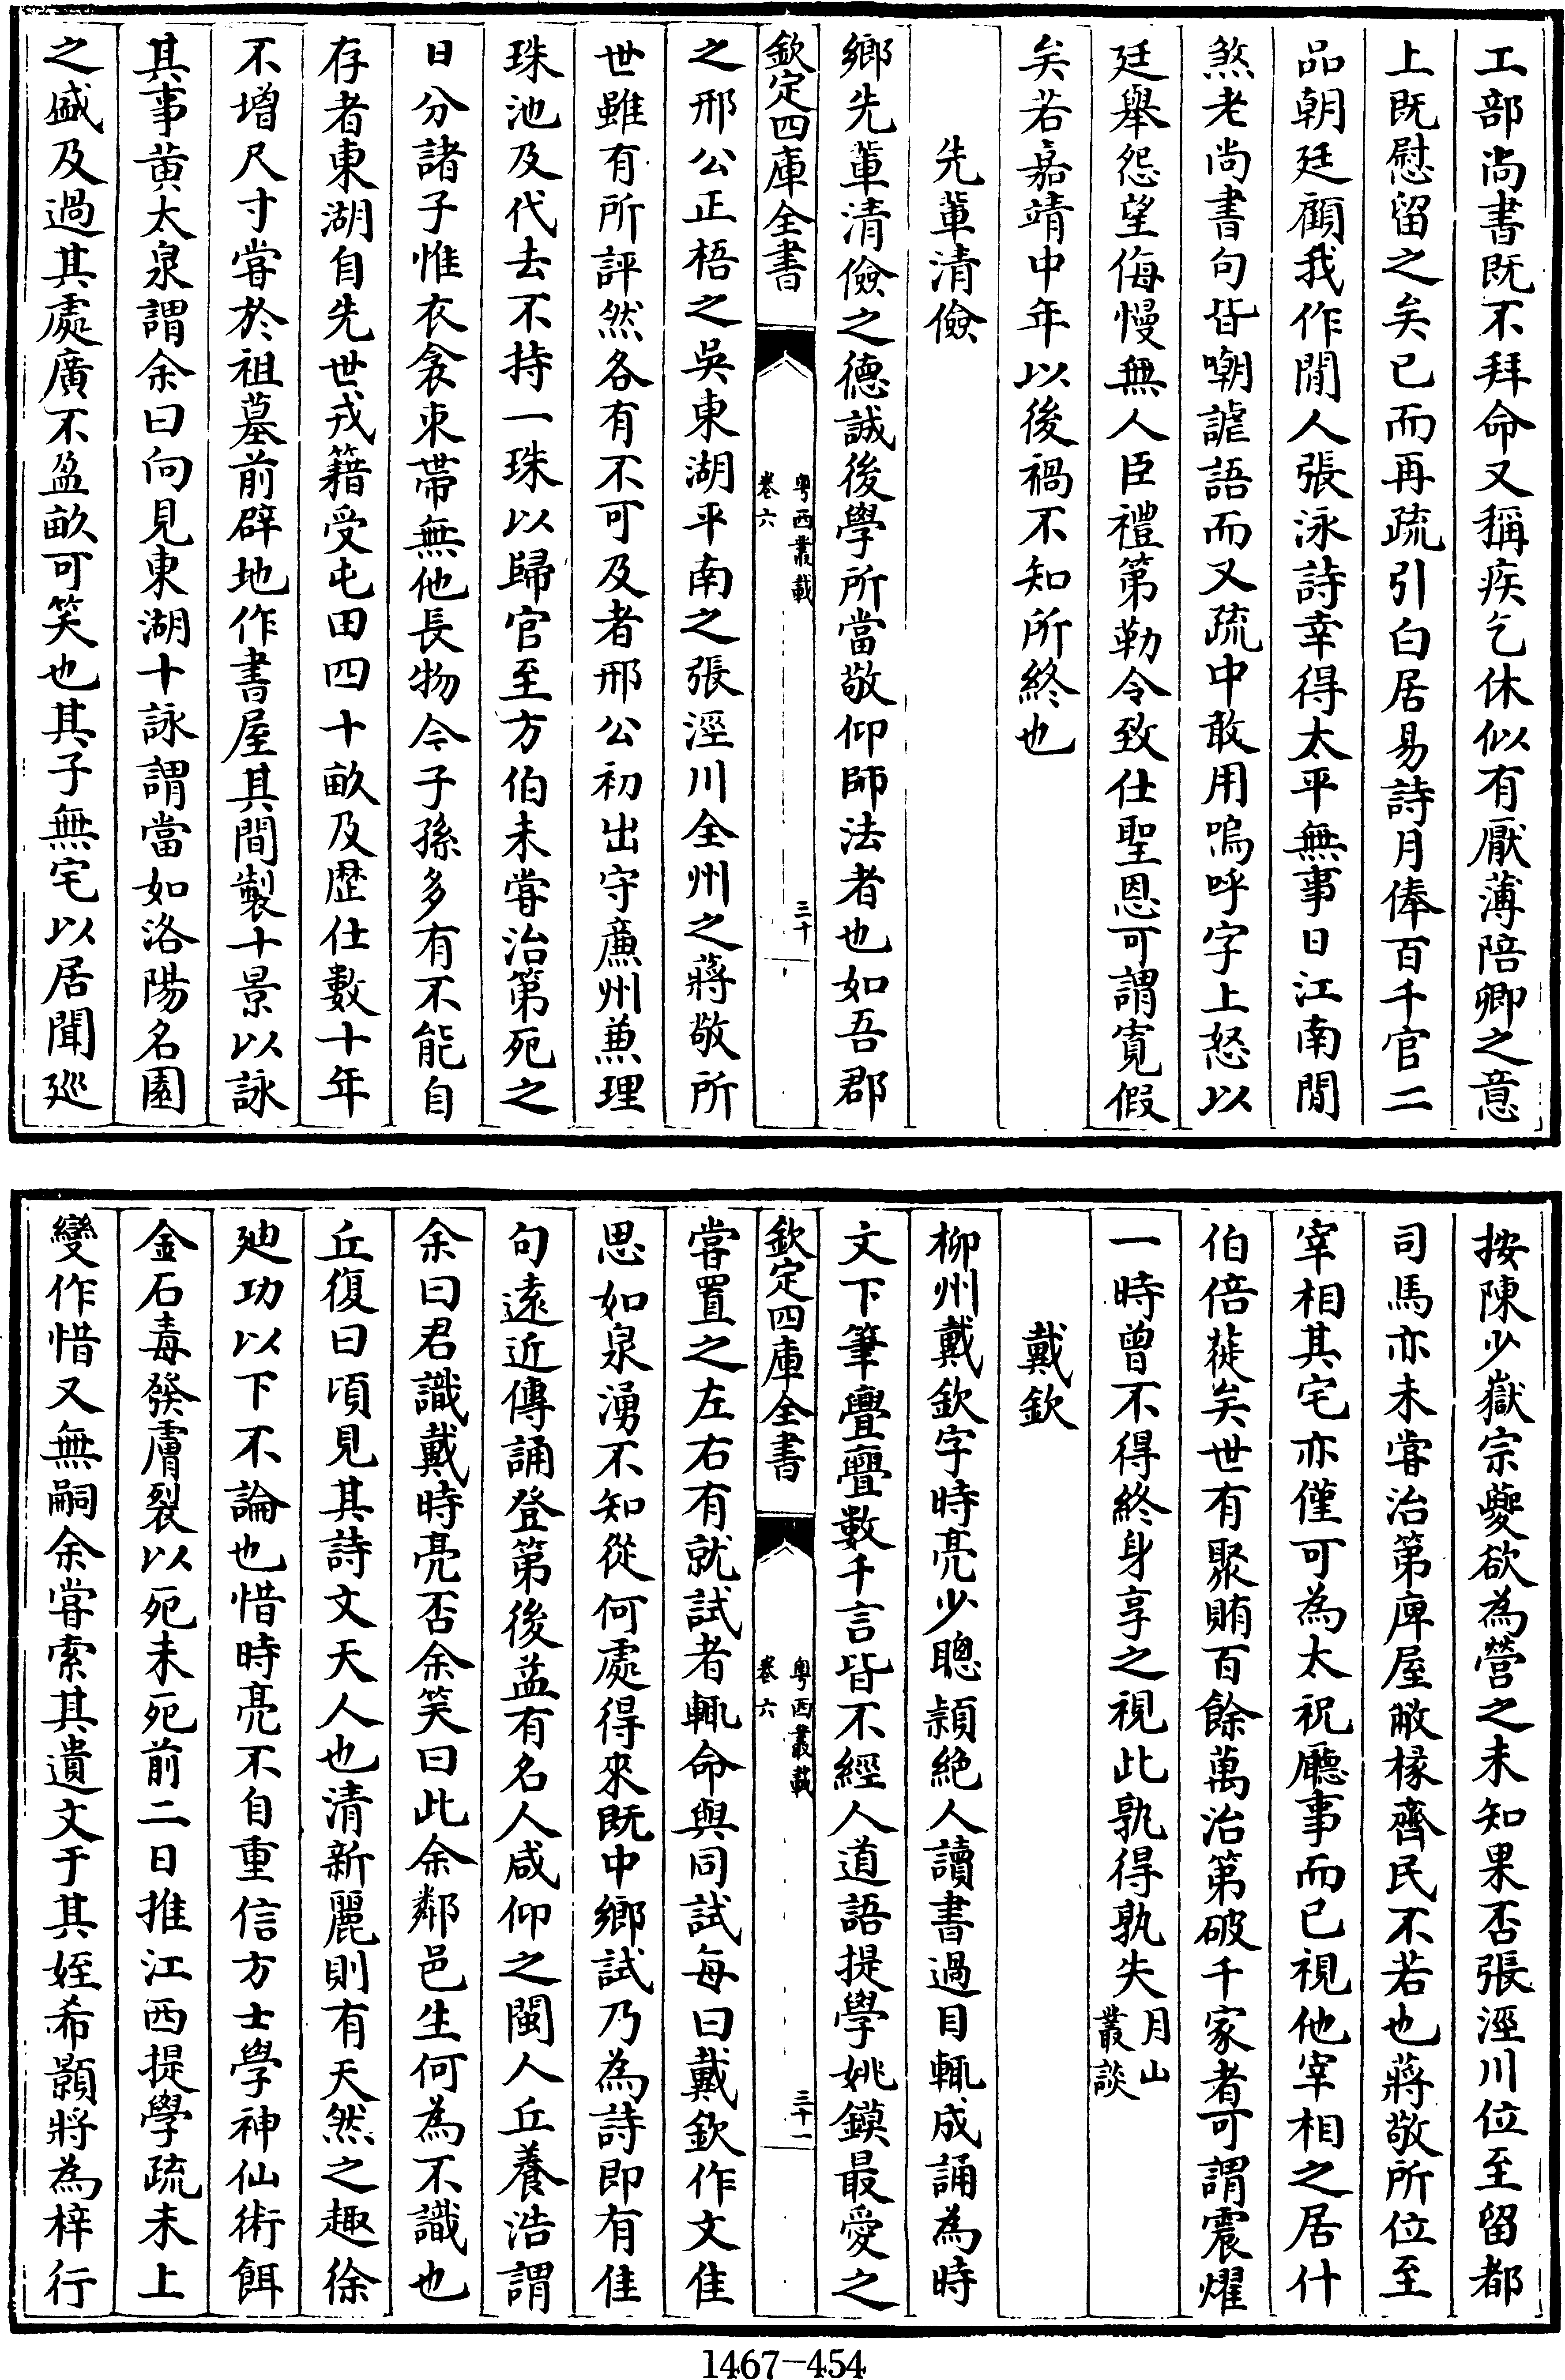 工部尚書既不拜命又稱疾乞休似有厭薄陪卿之意
上既慰留之矣已而再疏引白居易詩月俸百千官二
品朝廷顧我作閒人張泳詩幸得太平無事日江南閒
煞老尚書句皆嘲謔語而又疏中敢用嗚呼字上怒以
廷舉怨望侮慢無人臣禮第勒令致仕聖恩可謂寛假
矣若嘉靖中年以後禍不知所終也
先輩清儉
鄉先輩清儉之德誠後學所當敬仰師法者也如吾郡
欽定四庫全書
粤西叢載
卷六
三十
之邢公正梧之吳東湖平南之張淫川全州之蔣敬所
世雖有所評然各有不可及者邢公初出守亷州兼理
珠池及代去不持一珠以歸官至方伯未嘗治第死之
日分諸子惟衣衾束帶無他長物今子孫多有不能自
存者東湖自先世戎籍受屯田四十畝及歴仕數十年
不增尺寸嘗於祖墓前辟地作書屋其間製十景以詠
其事黄太泉謂余曰向見東湖十詠謂當如洛陽名園
之盛及過其處廣不盈畝可笑也其子無宅以居聞廵
按陳少嶽宗夔欲為營之未知果否張淫川位至留都
司馬亦未嘗治第庳屋敝椽齊民不若也蔣敬所位至
宰相其宅亦僅可為太祝廳事而已視他宰相之居什
伯倍蓰矣世有聚賄百餘萬治第破千家者可謂震燿
一時曾不得終身享之視此孰得孰失月山叢談
戴欽
柳州戴欽字時亮少聰頴絶人讀書過目輒成誦為時
文下筆亹亹數千言皆不經人道語提學姚鏌最愛之
欽定四庫全書
粤西叢載
卷六
三十一
嘗置之左右有就試者輒命與同試每曰戴欽作文佳
思如泉湧不知從何處得來既中鄉試乃為詩即有佳
句遠近傳誦登第後益有名人咸仰之閩人丘養浩謂
余曰君識戴時亮否余笑曰此余鄰邑生何為不識也
丘復曰頃見其詩文天人也清新麗則有天然之趣徐
廸功以下不論也惜時亮不自重信方士學神仙術餌
金石毒發膚裂以死未死前二日推江西提學疏未上
變作惜又無嗣余嘗索其遺文于其姪希顥將為梓行
1467-454